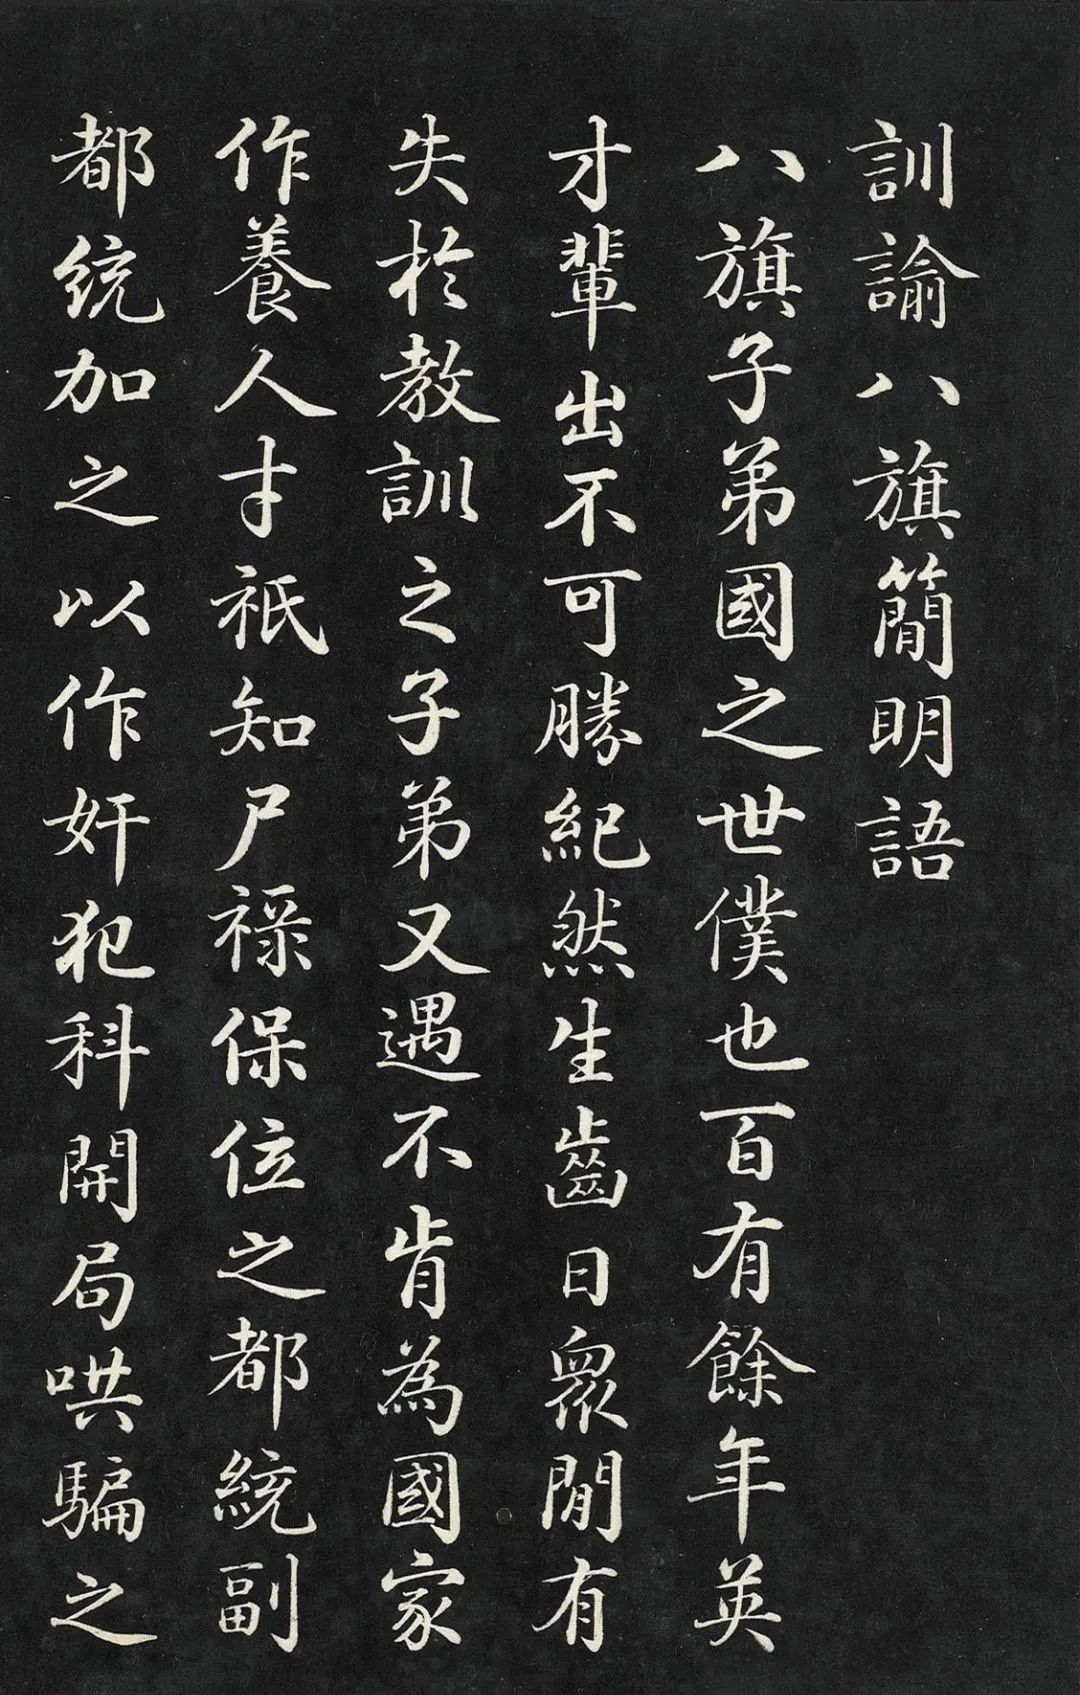 訓諭八旗簡明語
八旗子弟國之世僕也百有餘年英
才輩出不可勝紀然生齒日眾閒有
失於教訓之子弟又遇不肯為國家
作養人才祇知尸祿保位之都統副
都統加之以作奸犯科開局哄騙之